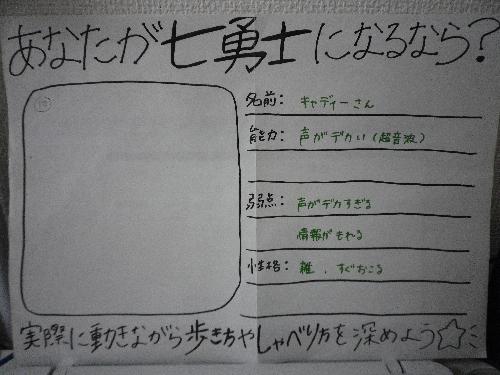 あなたが七勇士になるなら?
名前: キャディーさん
能力: 声がデカい(超音波)
弱点: 声がデカすぎる
情報がもれる
性格: 雑、すぐおこる
実際に動きながら歩き方やしゃべり方を深めよう☆